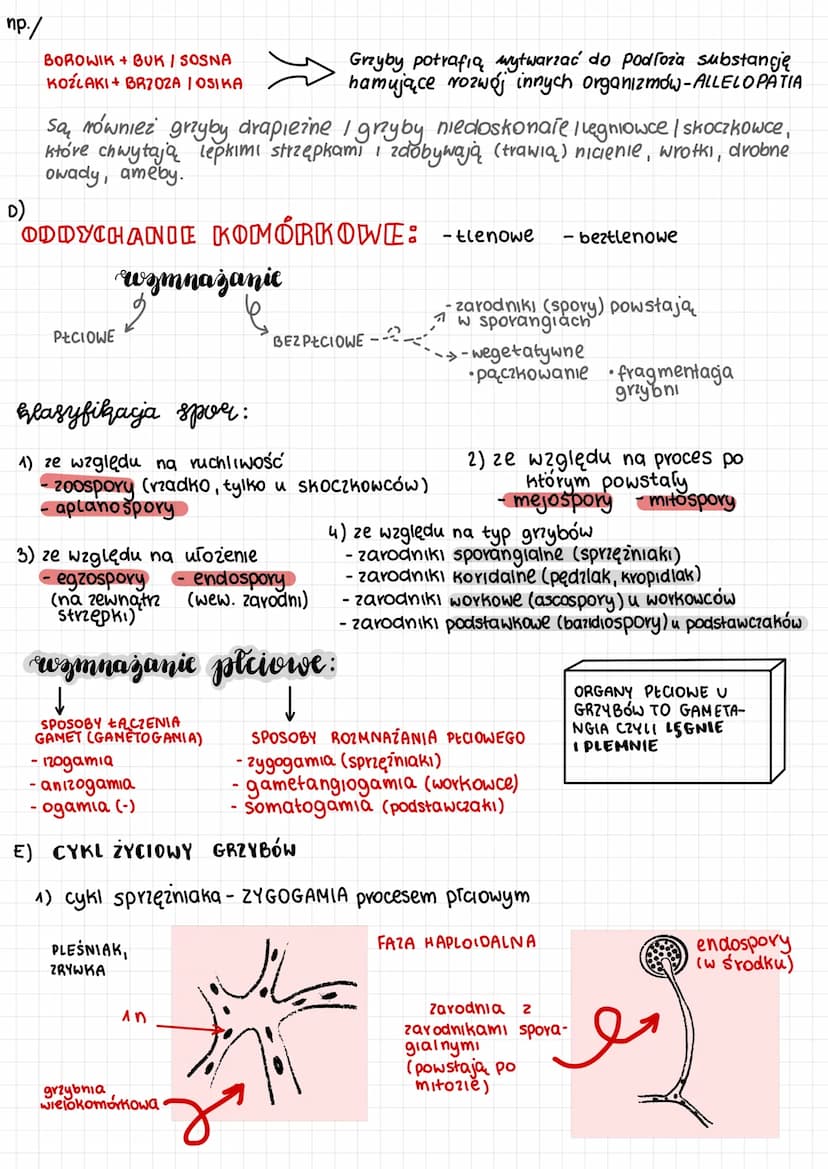 np./
BOROWIK + BUK / SOSNA
KOŹLAKI + BRZOZA / OSIKA
Grzyby potrafią wytwarzać do podłoża substancję
hamujące rozwój innych organizmów - ALLELOPATIA
Są również grzyby drapieżne / grzyby niedoskonałe / lęgniowce / skoczkowce,
które chwytają lepkimi strzępkami i zdobywają (trawią) nicienie, wrotki, drobne
owady, ameby.
D)
ODDYCHANIE KOMÓRKOWE: - tlenowe - beztlenowe
wzmnażanie
PŁCIOWE
BEZPŁCIOWE
- zarodniki (spory) powstają
w sporangiach
- wegetatywne
• pączkowanie • fragmentacja
grzybni
klasyfikacja spor:
1) ze względu na ruchliwość
- zoospory (rzadko, tylko u skoczkowców)
- aplanospory
2) ze względu na proces po
którym powstały
- mejospory - mitospory
3) ze względu na ułożenie
- egzospory - endospory
(na zewnątrz (wew. zarodni)
strzępki)
4) ze względu na typ grzybów
- zarodniki sporangialne (sprzężniaki)
- zarodniki koridalne (pędzlak, kropidlak)
- zarodniki workowe (ascospory) u workowców
- zarodniki podstawkowe (bazidiospory) u podstawczaków
wzmnażanie płciowe:
SPOSOBY ŁĄCZENIA
GAMET (GAMETOGANIA)
- izogamia
- anizogamia
- ogamia (-)
SPOSOBY ROZMNAŻANIA PŁCIOWEGO
- zygogamia (sprzężniaki)
- gametangiogamia (workowce)
- somatogamia (podstawczaki)
ORGANY PŁCIOWE U
GRZYBÓW TO GAMETA-
NGIA CZYLI LĘGNIE
I PLEMNIE
E) CYKL ŻYCIOWY GRZYBÓW
1) cykl sprzężniaka - ZYGOGAMIA procesem płciowym
PLEŚNIAK,
ZRYWKA
1n
grzybnia
wielokomórkowa
FAZA HAPLOIDALNA
zarodnia z
zarodnikami spora-
gialnymi
(powstają po
mitozie)
endospory
(w środku)